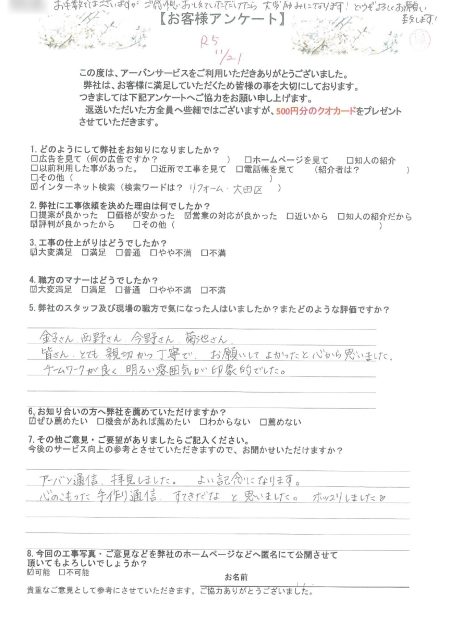 お手数ではございますが ご感想 お書きいただけたら 大変励みになります！どうぞよろしくお願い
致します！
【お客様アンケート】
R5
11/21
この度は、アーバンサービスをご利用いただきありがとうございました。
弊社は、お客様に満足していただくため皆様の事を大切にしております。
つきましては下記アンケートへご協力をお願い申し上げます。
返送いただいた方全員へ些細ではございますが、500円分のクオカードをプレゼント
させていただきます。
1. どのようにして弊社をお知りになりましたか？
☐広告を見て（何の広告ですか？ ） ☐ホームページを見て ☐知人の紹介
☐以前利用した事があった。 ☐近所で工事を見て ☐電話帳を見て （紹介者は？ ）
☐その他（ ）
☑インターネット検索（検索ワードは？ リフォーム・大田区 ）
2. 弊社に工事依頼を決めた理由は何でしたか？
☐提案が良かった ☐価格が安かった ☑営業の対応が良かった ☐近いから ☐知人の紹介だから
☑評判が良かったから ☐その他（ ）
3. 工事の仕上がりはどうでしたか？
☑大変満足 ☐満足 ☐普通 ☐やや不満 ☐不満
4. 職方のマナーはどうでしたか？
☑大変満足 ☐満足 ☐普通 ☐やや不満 ☐不満
5. 弊社のスタッフ及び現場の職方で気になった人はいましたか？またどのような評価ですか？
金子さん 西野さん 今野さん 菊池さん
皆さん とても 親切かつ丁寧で、お願いして よかったと心から思いました。
チームワークが良く 明るい雰囲気が印象的でした。
6. お知り合いの方へ弊社を薦めていただけますか？
☑ぜひ薦めたい ☐機会があれば薦めたい ☐わからない ☐薦めない
7. その他ご意見・ご要望がありましたらご記入ください。
今後のサービス向上の参考とさせていただきますので、お聞かせいただけますか？
アーバン通信、拝見しました。 よい記念になります。
心のこもった 手作り通信、すてきだな と思いました。 ホッコリしました
8. 今回の工事写真・ご意見などを弊社のホームページなどへ匿名にて公開させて
頂いてもよろしいでしょうか？
☑可能 ☐不可能
お名前
貴重なご意見として参考にさせていただきます。ご協力ありがとうございました。